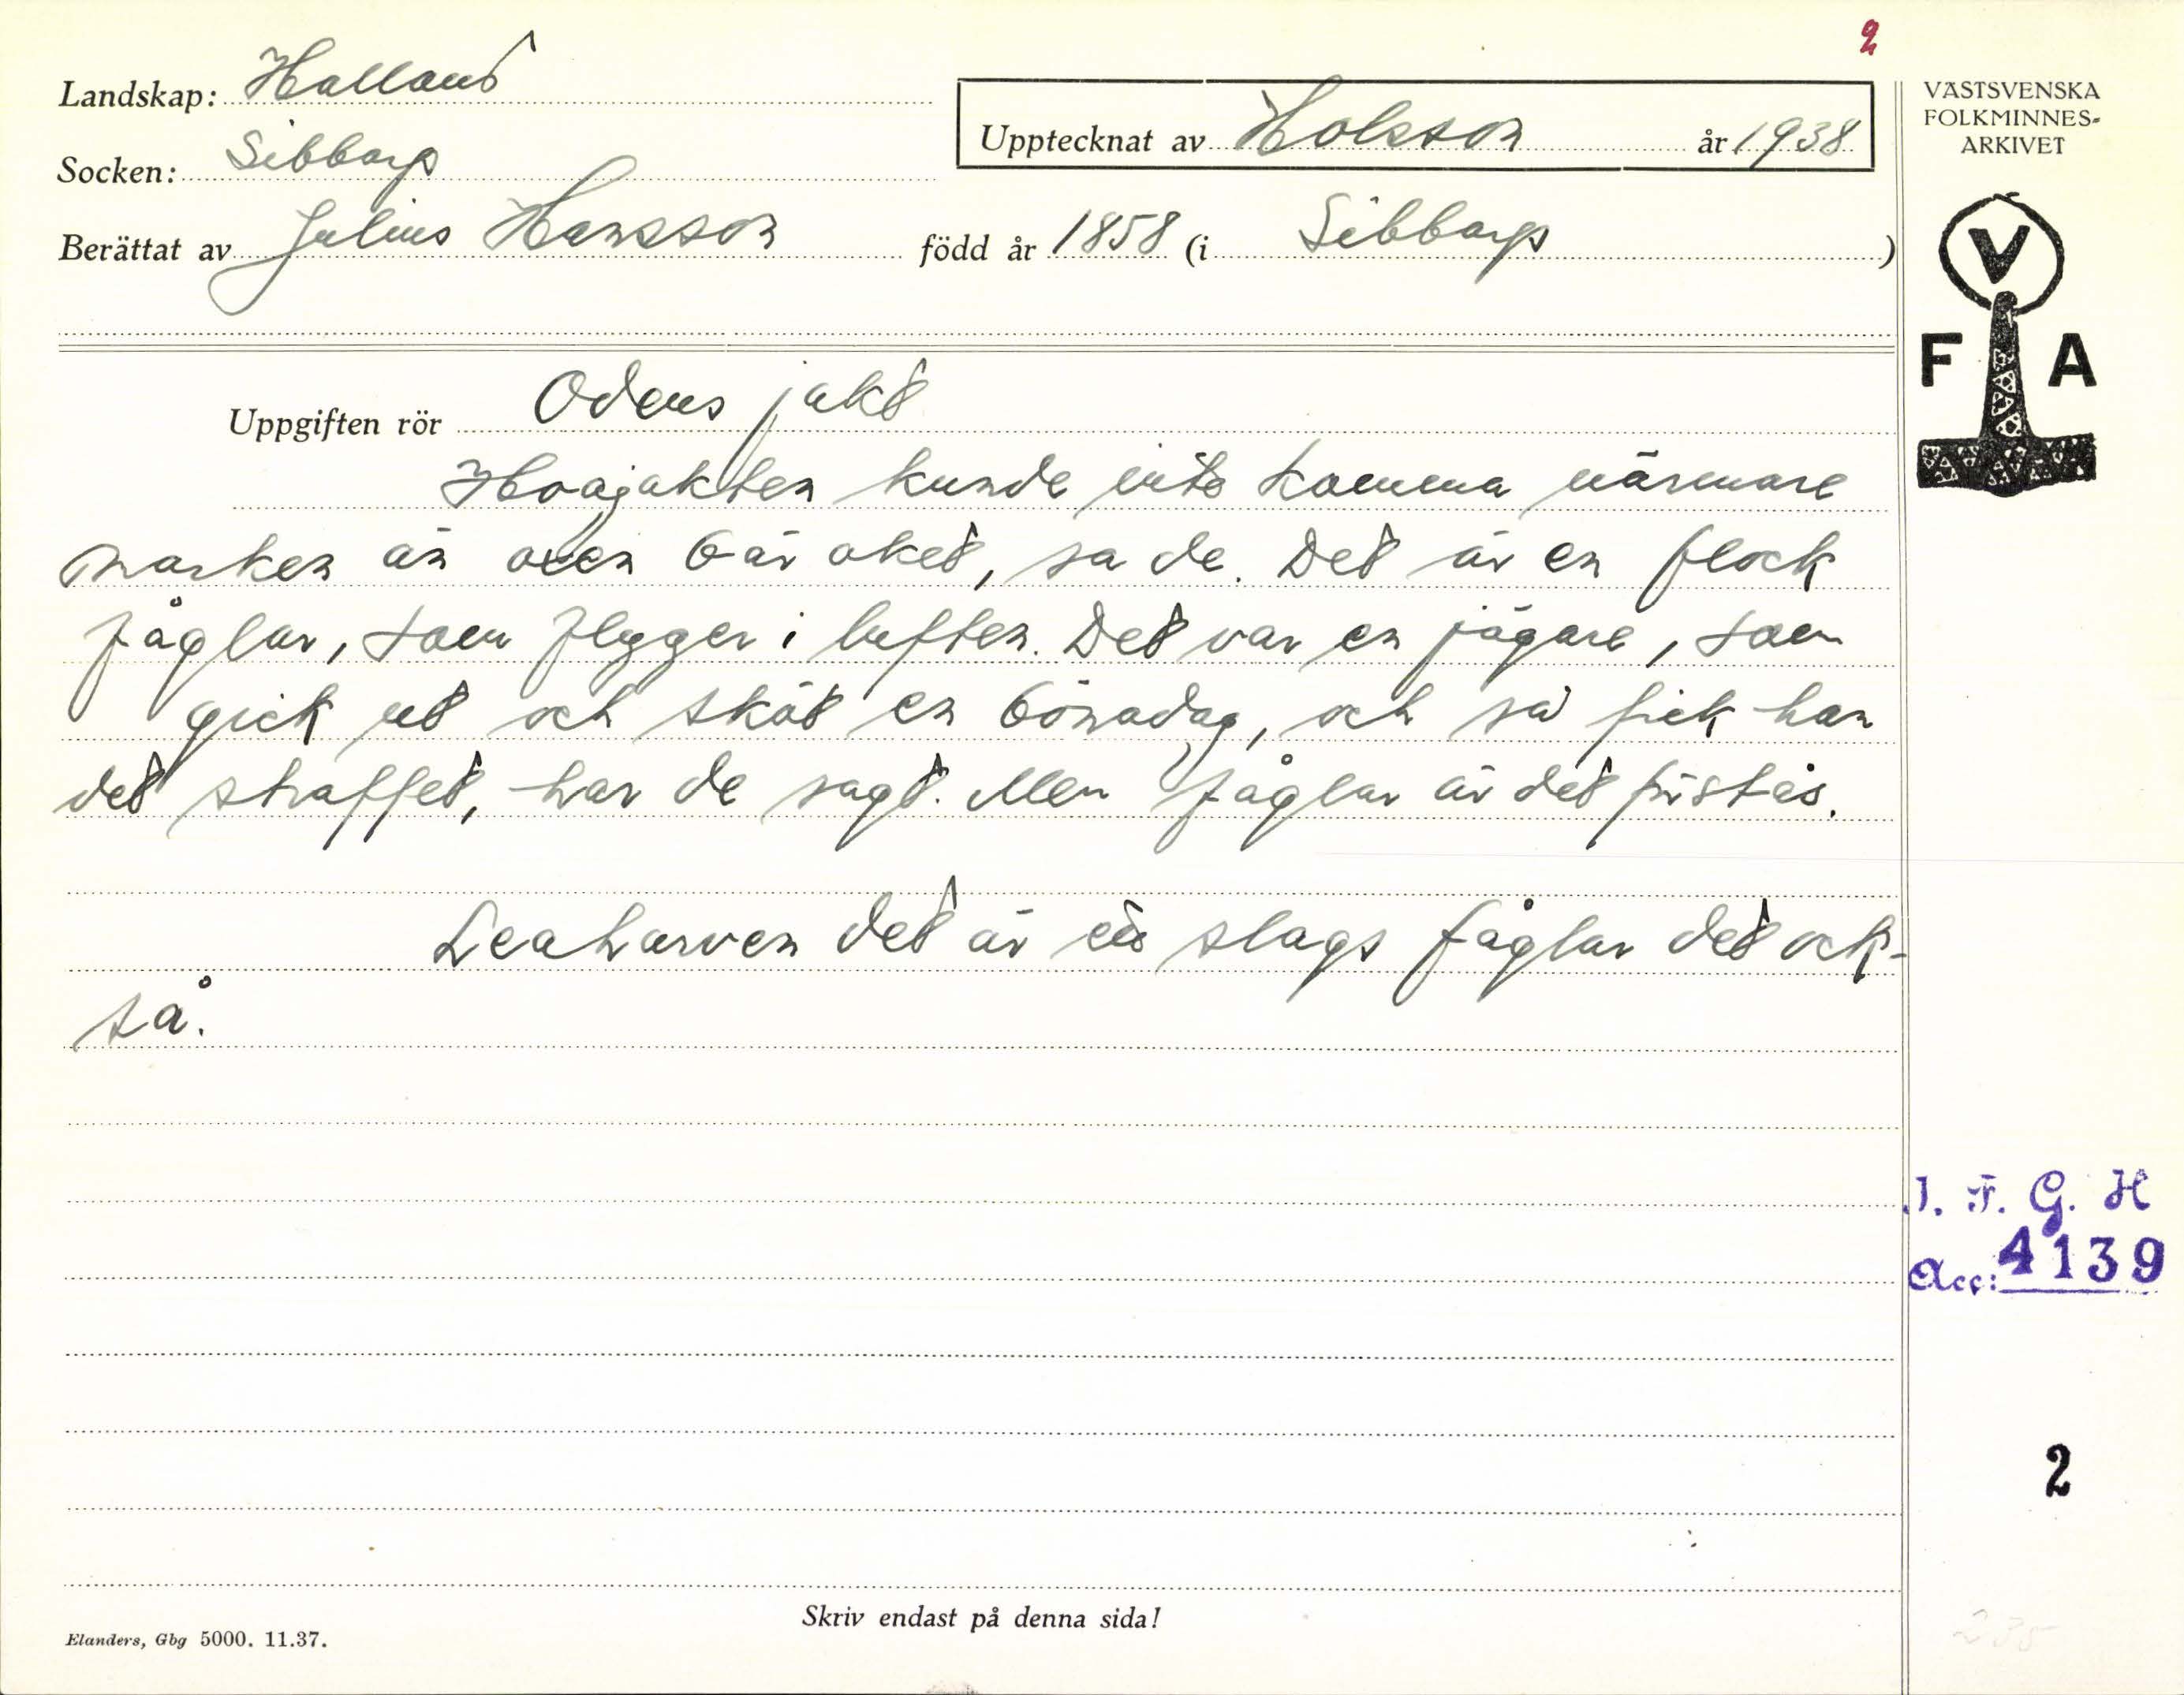 2
Landskap: Halland
Upptecknat av Holsson år 1938
Socken: Sibbarp
Berättat av Julius Hansson född år 1858 (i Sibbarp)
VÄSTSVENSKA
FOLKMINNES-
ARKIVET
V
F A
Uppgiften rör Odens jakt
Hoajakten kunde inte komma närmare
marken än oxen bär oket, sa de. Det är en flock
fåglar, som flyger i luften. Det var en jägare, som
gick ut och sköt en bönadag, och så fick han
det straffet, har de sagt. Men fåglar är det förstås.
Leaharven det är ett slags fåglar det ock-
så.
I. F. G. H
Acc: 4139
2
Skriv endast på denna sida!
Elanders, Gbg 5000. 11.37.
235